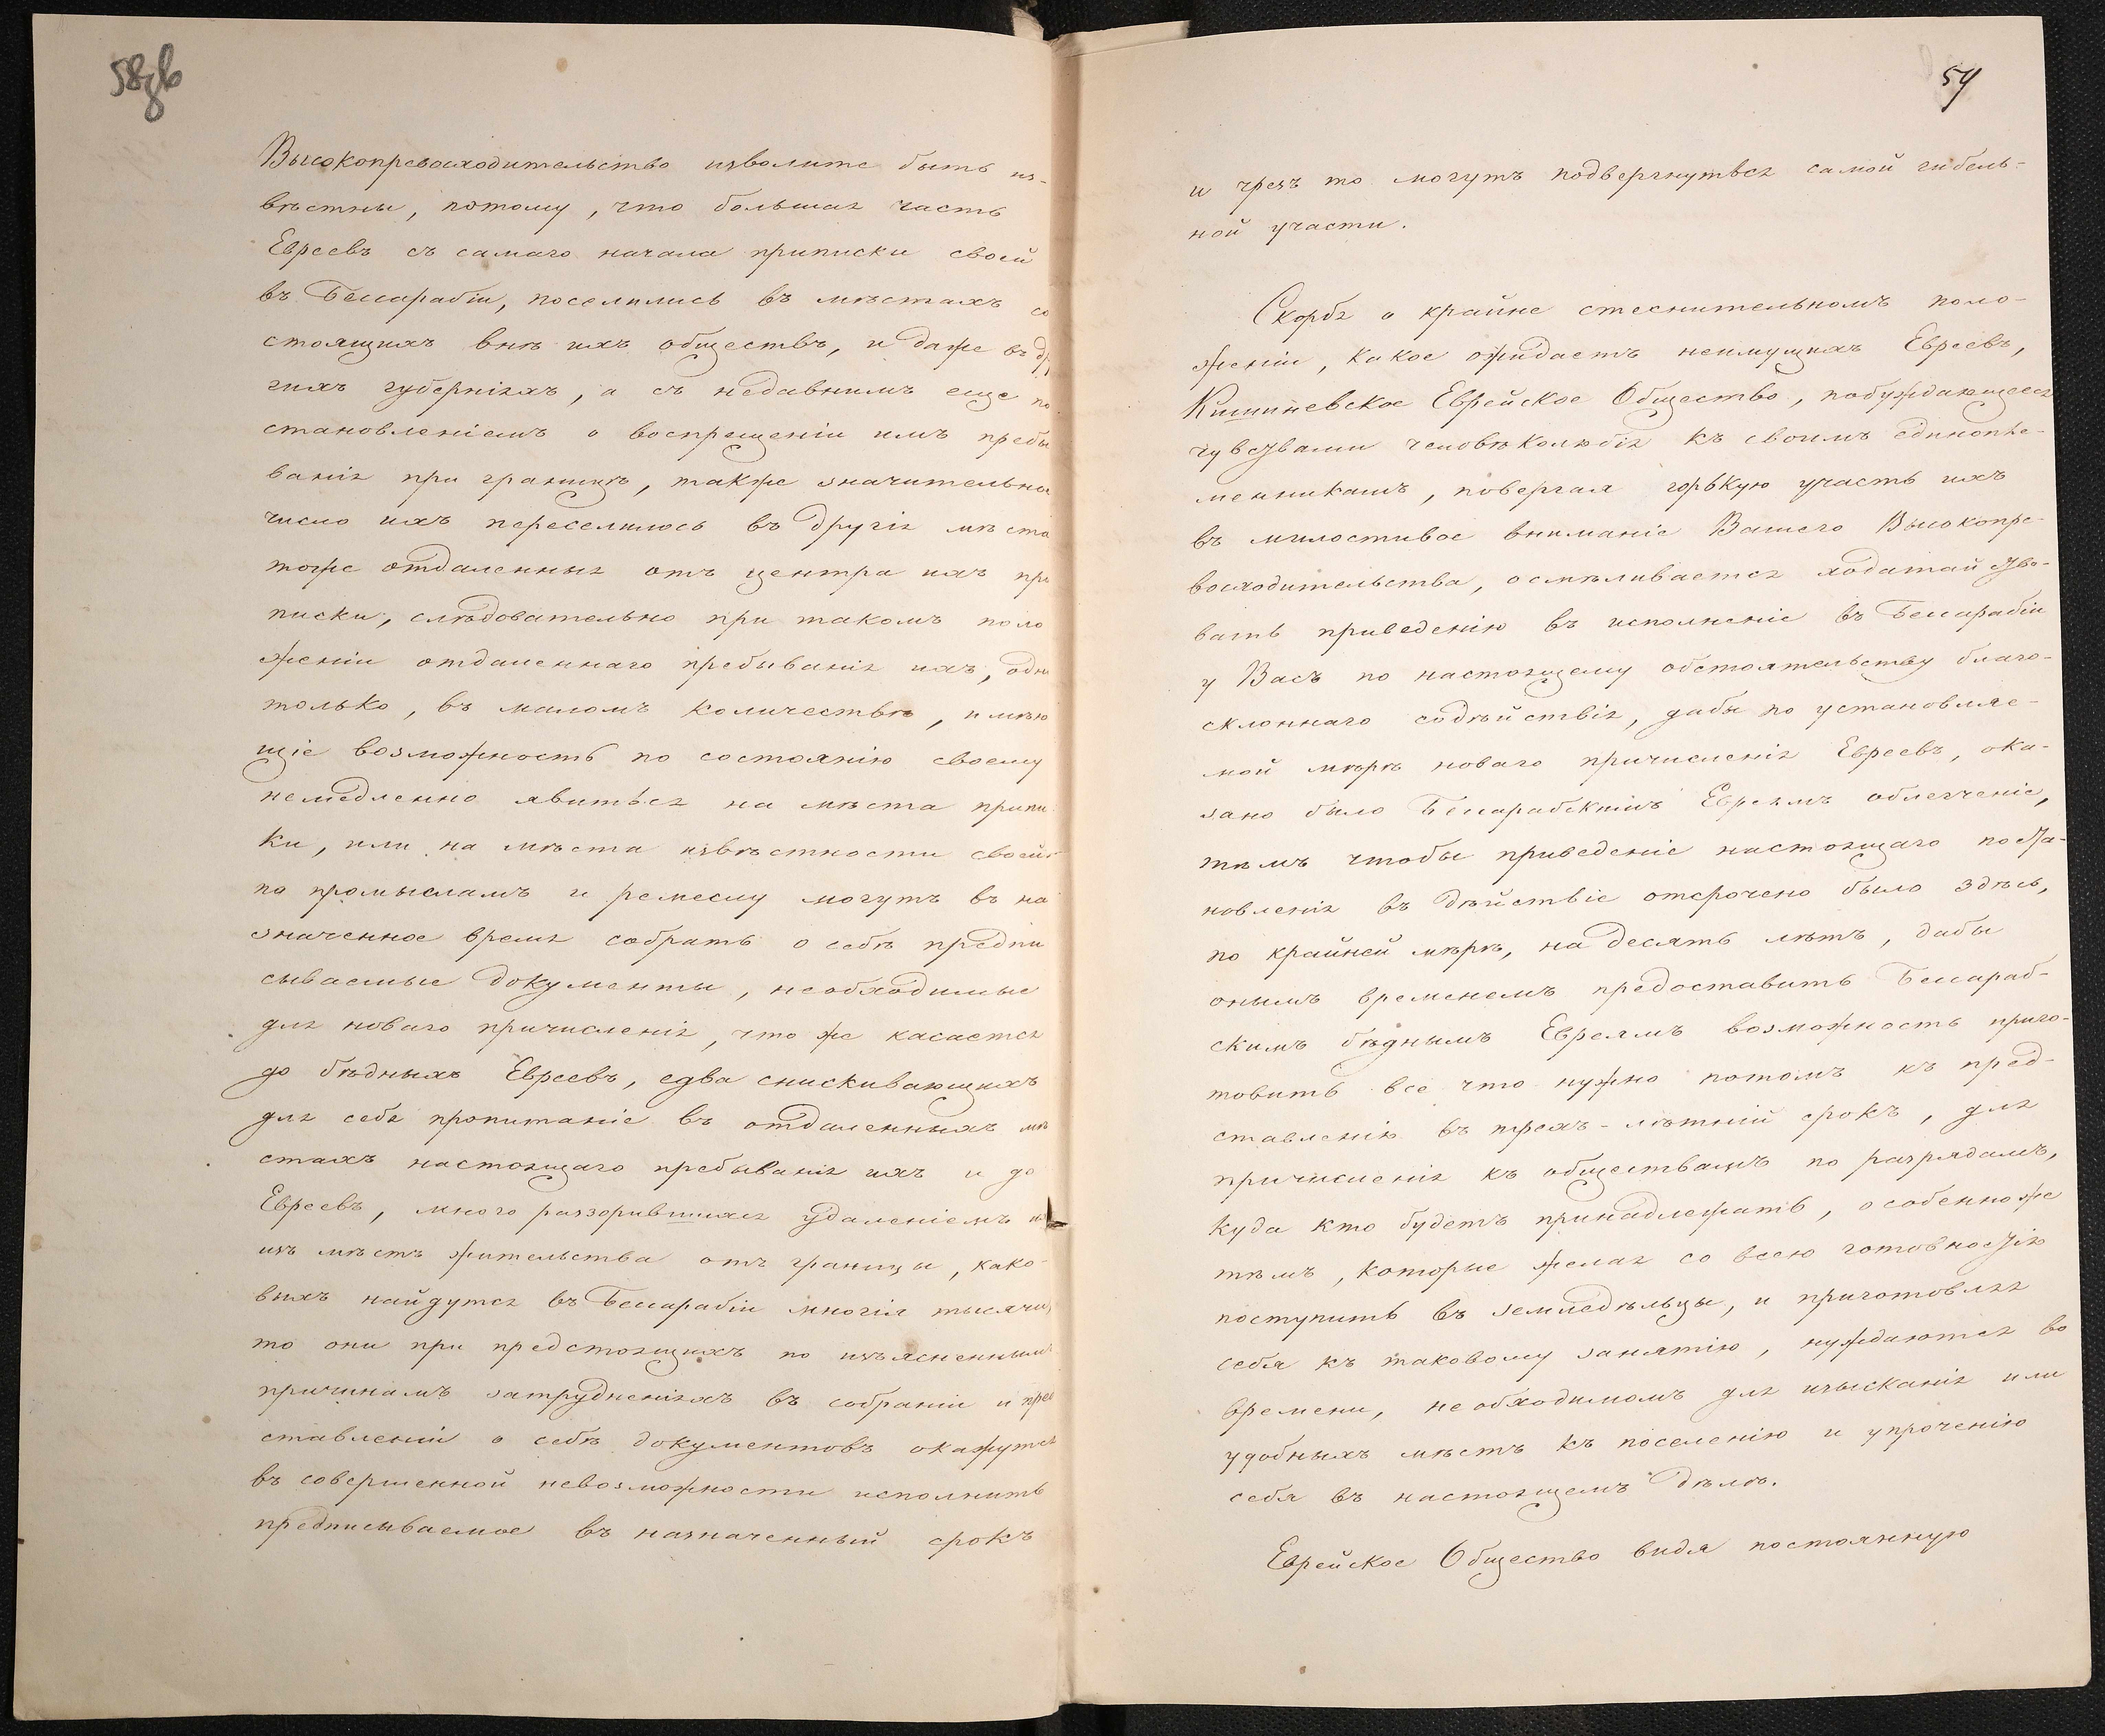 58об
Высокопревосходительство изволите быть из-
вѣстны, потому, что большая часть
Евреевъ съ самаго начала приписки своей
въ Бессарабіи, поселились въ мѣстахъ со
стоящихъ внѣ ихъ обществъ, и даже въ др
гихъ губерніяхъ, а съ недавнимъ еще по
становленіемъ о воспрещеніи имъ пребы
ванія при границѣ, также значительно
число ихъ переселилось въ другія мѣста
тоже отдаленныя отъ центра ихъ при
писки, слѣдовательно при такомъ поло
женіи отдаленнаго пребыванія ихъ, одни
только, въ маломъ количествѣ, имѣю
щіе возможность по состоянію своему
немедленно явиться на мѣста припи
ки, или на мѣста извѣстности своей
по промысламъ и ремеслу могутъ въ на
значенное время собрать о себѣ предпи
сываемые документы, необходимые
для новаго причисленія, что же касается
до бѣдныхъ Евреевъ, едва снискивающихъ
для себя пропитаніе въ отдаленныхъ мѣ
стахъ настоящаго пребыванія ихъ и до
Евреевъ, много раззорившихся удаленіемъ
изъ мѣстъ жительства отъ границы, како-
выхъ найдутся въ Бессарабіи многія тысячи,
то они при предстоящихъ по изъясненнымъ
причинамъ затрудненіяхъ въ собраніи и пред
ставленіи о себѣ документовъ окажутся
въ совершенной невозможности исполнить
предписываемое въ назначенный срокъ
59
и чрезъ то могутъ подвергнуться самой гибель-
ной участи.
Скорбя о крайне стеснительномъ поло-
женіи, какое ожидаетъ неимущихъ Евреевъ,
Кишиневское Еврейское Общество, побуждающееся
чувствами человѣколюбія къ своимъ единопле-
менникамъ, повергая горькую участь ихъ
въ милостивое вниманіе Вашего Высокопре-
восходительства, осмѣливается ходатайство-
вать приведенію въ исполненіе въ Бессарабіи
у Васъ по настоящему обстоятельству благо-
склоннаго содѣйствія, дабы по установляе-
мой мѣрѣ новаго причисленія Евреевъ, ока-
зано было Бессарабскимъ Евреямъ облегченіе,
тѣмъ чтобы приведеніе настоящаго поста-
новленія въ дѣйствіе отсрочено было здѣсь,
по крайней мѣрѣ, на десять лѣтъ, дабы
онымъ временемъ предоставить Бессараб-
скимъ бѣднымъ Евреямъ возможность приго-
товить все что нужно потомъ къ пред-
ставленію въ трехъ-лѣтній срокъ, для
причисленія къ обществамъ по разрядамъ,
куда кто будетъ принадлежать, особенно же
тѣмъ, которые желая со всею готовностію
поступить въ земледѣльцы, и приготовляя
себя къ таковому занятію, нуждаются во
времени, необходимомъ для изысканія или
удобныхъ мѣстъ къ поселенію и упроченію
себя въ настоящемъ дѣлѣ.
Еврейское Общество видя постоянную